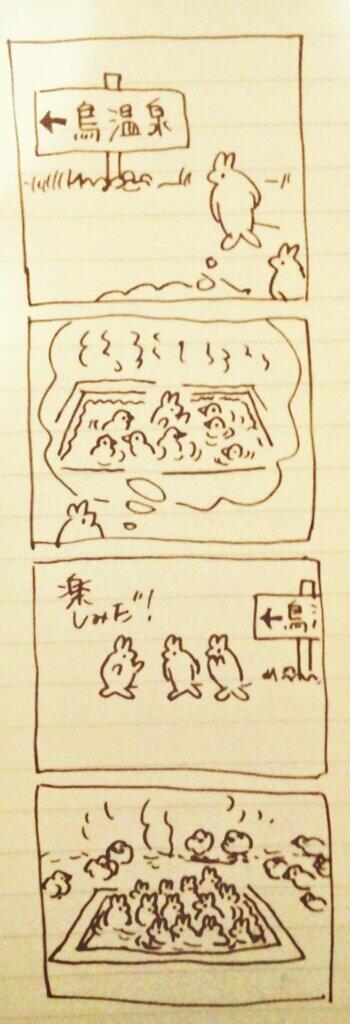 ←鳥温泉
楽
しみだ!
←鳥